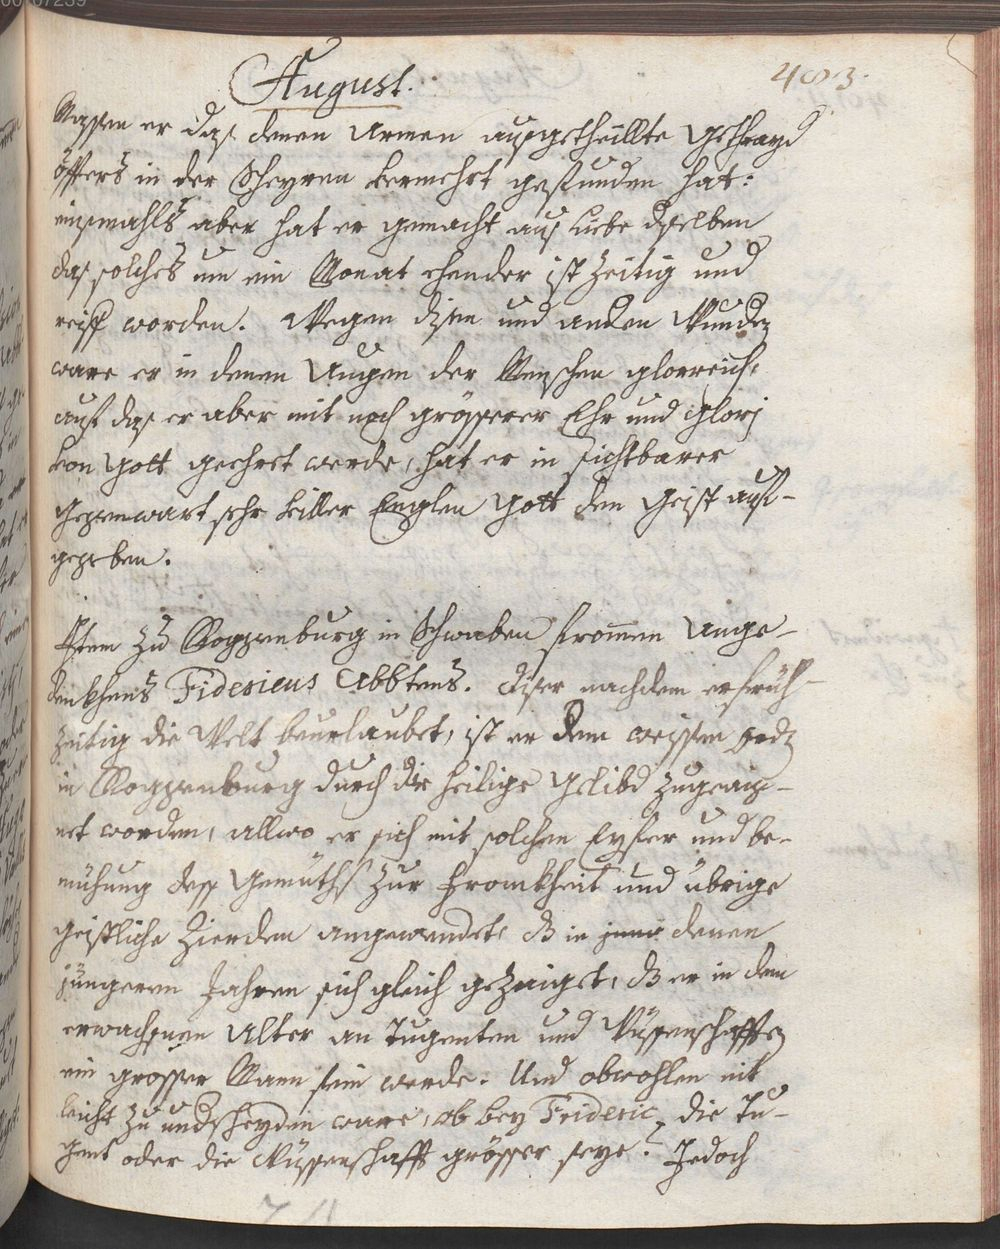 August.
483.
Massen er das denen Armen ausgetheillte Getrayd
öffters in der Scheyren vermehrt gefunden hat:
einsmahls aber hat er gemacht aus Liebe dselben
das solches um ein Monat ehender ist zeitig und
reiff worden. Wegen disen und anden Wunder
ware er in denen Augen der Menschen glorreich,
auf das er aber mit noch grösserer Ehr und Glorj
von Gott geehret werde, hat er in sichtbarer
Gegenwart sehr viller Englen Gott den Geist auf-
gegeben.
Item zu Roggenburg in Schwaben frommen Ange-
denkhens Fidericus Abbtens. diser nachdem er früh-
zeitig die Welt beurlaubet, ist er dem weissen
in Roggenburg durch die heilige Gelibd zugeaig-
net worden, allwo er sich mit solchen Eyfer und be-
mühung dess Gemüths zur Fromkheit und übrige
geistliche Zierden angewendet, in denen
jüngeren Jahren sich gleich gezeiget, er in dem
erwachsnen Alter an Tugenten und Wüssenschafften
ein grosser Mann sein werde. Und obwohlen nit
leicht zu undscheyden ware, ob bey Frideric, die Tu-
gent oder die Wüssenschafft grösser seye? Jedoch